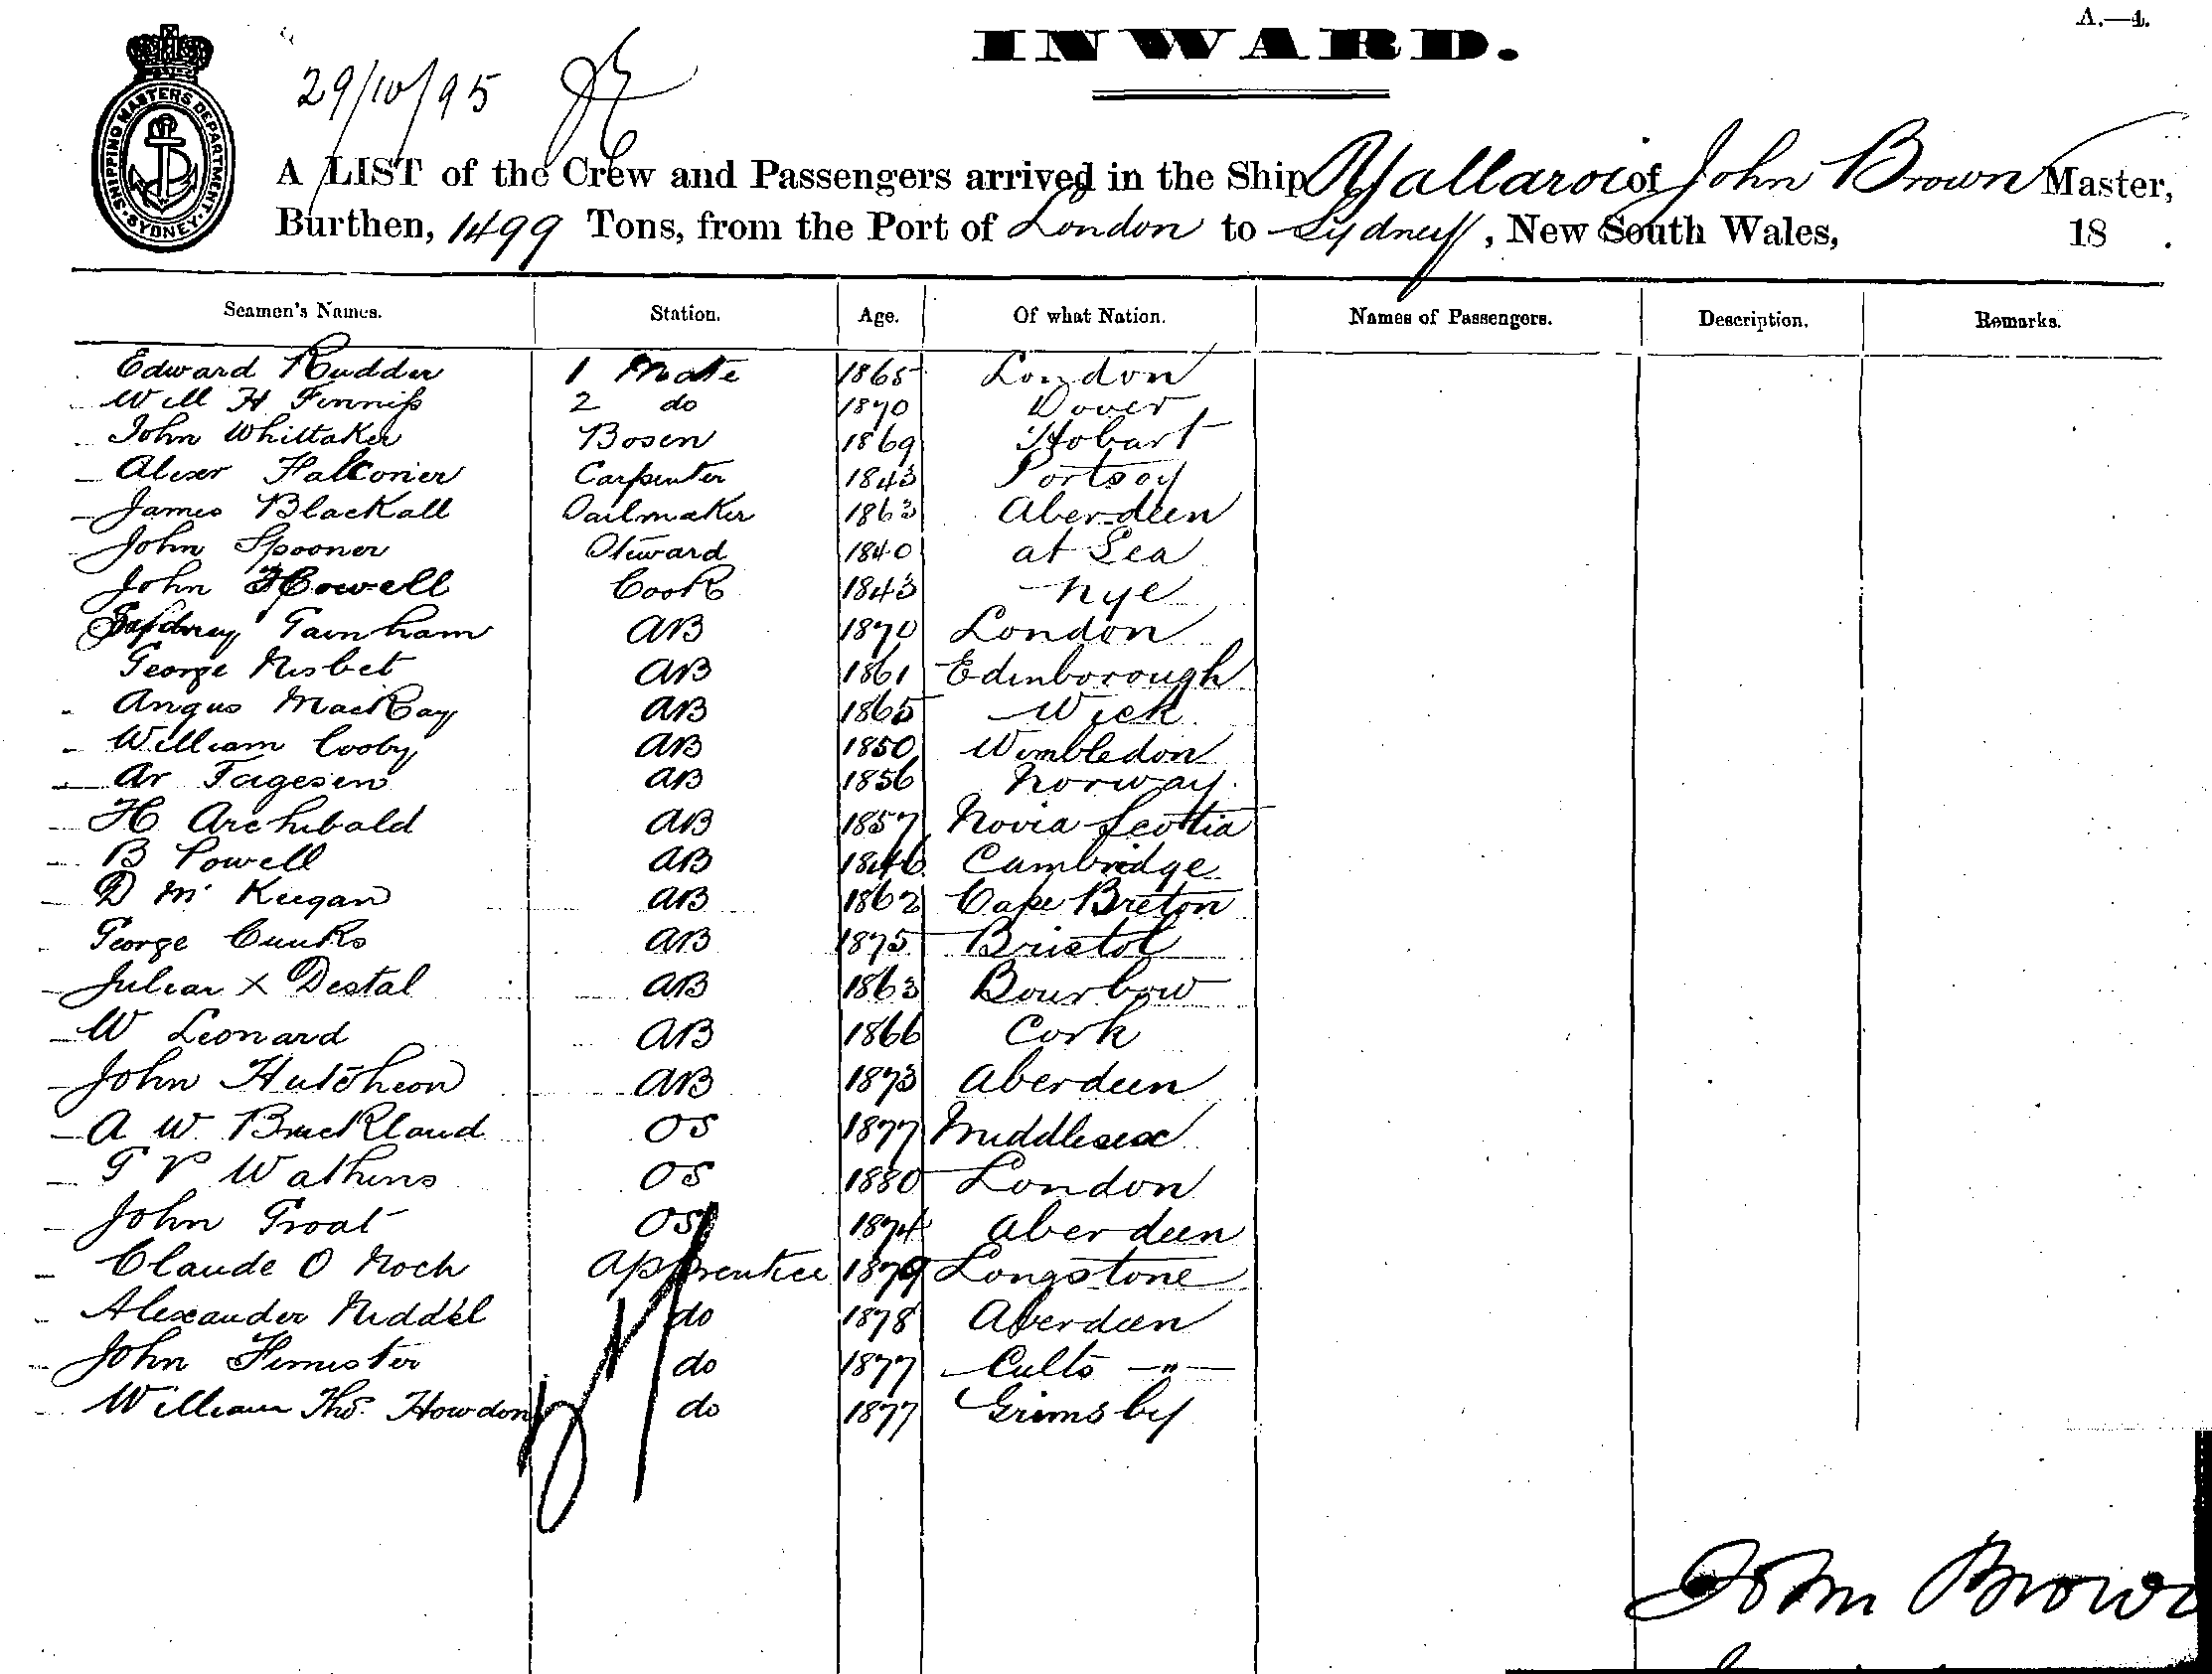 A.—4.
INWARD.
29/10/95
SHIPPING MASTERS DEPARTMENT. SYDNEY.
A LIST of the Crew and Passengers arrived in the Ship Yallaroi of John Brown Master,
Burthen, 1499 Tons, from the Port of London to Sydney, New South Wales, 18 .
Seamen's Names. Station. Age. Of what Nation. Names of Passengers. Description. Remarks.
Edward Rudder 1 Mate 1865 London
Will H Finnis 2 do 1870 Dover
John Whittaker Bosen 1869 Hobart
Alexr Falconer Carpenter 1843 Portsoy
James Blackall Sailmaker 1863 Aberdeen
John Spooner Steward 1840 at Sea
John Howell Cook 1843 Nye
Sydney Farnham AB 1870 London
George Nisbet AB 1861 Edinborough
Angus MacKay AB 1865 Wick
William Cooby AB 1850 Wimbledon
Ar Tagesen AB 1856 Norway
H Archibald AB 1857 Novia Scottia
B Powell AB 1846 Cambridge
D Mc Keegan AB 1862 Cape Breton
George AB 1875 Bristol
Julian X Destal AB 1863 Bourbow
W Leonard AB 1866 Cork
John Hutcheon AB 1873 Aberdeen
A W Bruckland OS 1877 Middlesex
G V Wathins OS 1880 London
John Groat OS 1874 Aberdeen
Claude O Roch Apprentice 1879 Longstone
Alexander Riddel do 1878 Aberdeen
John Fimister do 1877 Cults —"—
William Thos. Howdon do 1877 Grimsby
John Brown